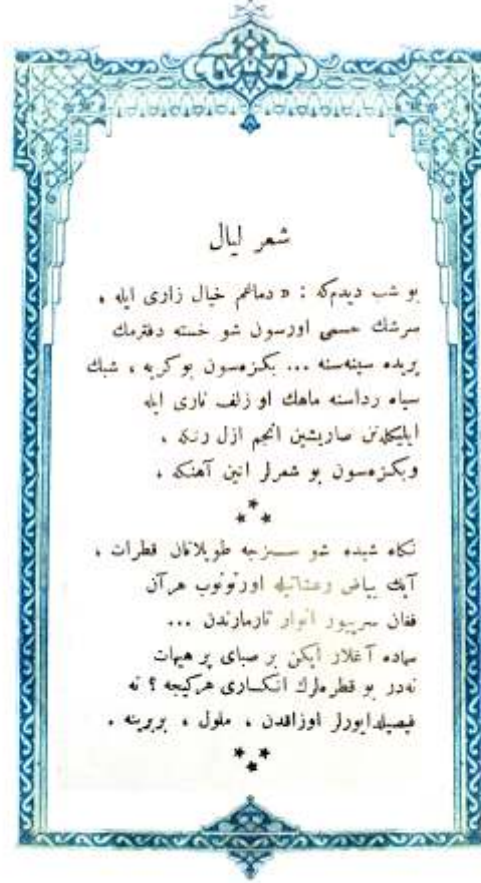 شعر ليال
بو شب ديدم‌كه : « دماغم خيال زارى ايله ،
سرشك حسمى اورسون شو خسته دفترمك
پريده سينه‌سنه ... بكزه‌سون بو كريه ، شبك
سياه رداسنه ماهك او زلف تارى ايله
ايليكلنن صاريشين انجم ازل رنكه ،
وبكزه‌سون بو شعرلر انين آهنكه .
***
نكاه شبده شو سسزجه طوپلانان قطرات ،
آيك بياض رعشاتيله اورتونوب هرآن
فغان سرپيور انوار تارمارندن ...
سماده آغلار ايكن بر صباى پر هيهات
نه‌در بو قطره‌لرك انكسارى هركيجه ؟ نه
فيصيلدايورلر اوزاقدن ، ملول ، بربرينه .
***